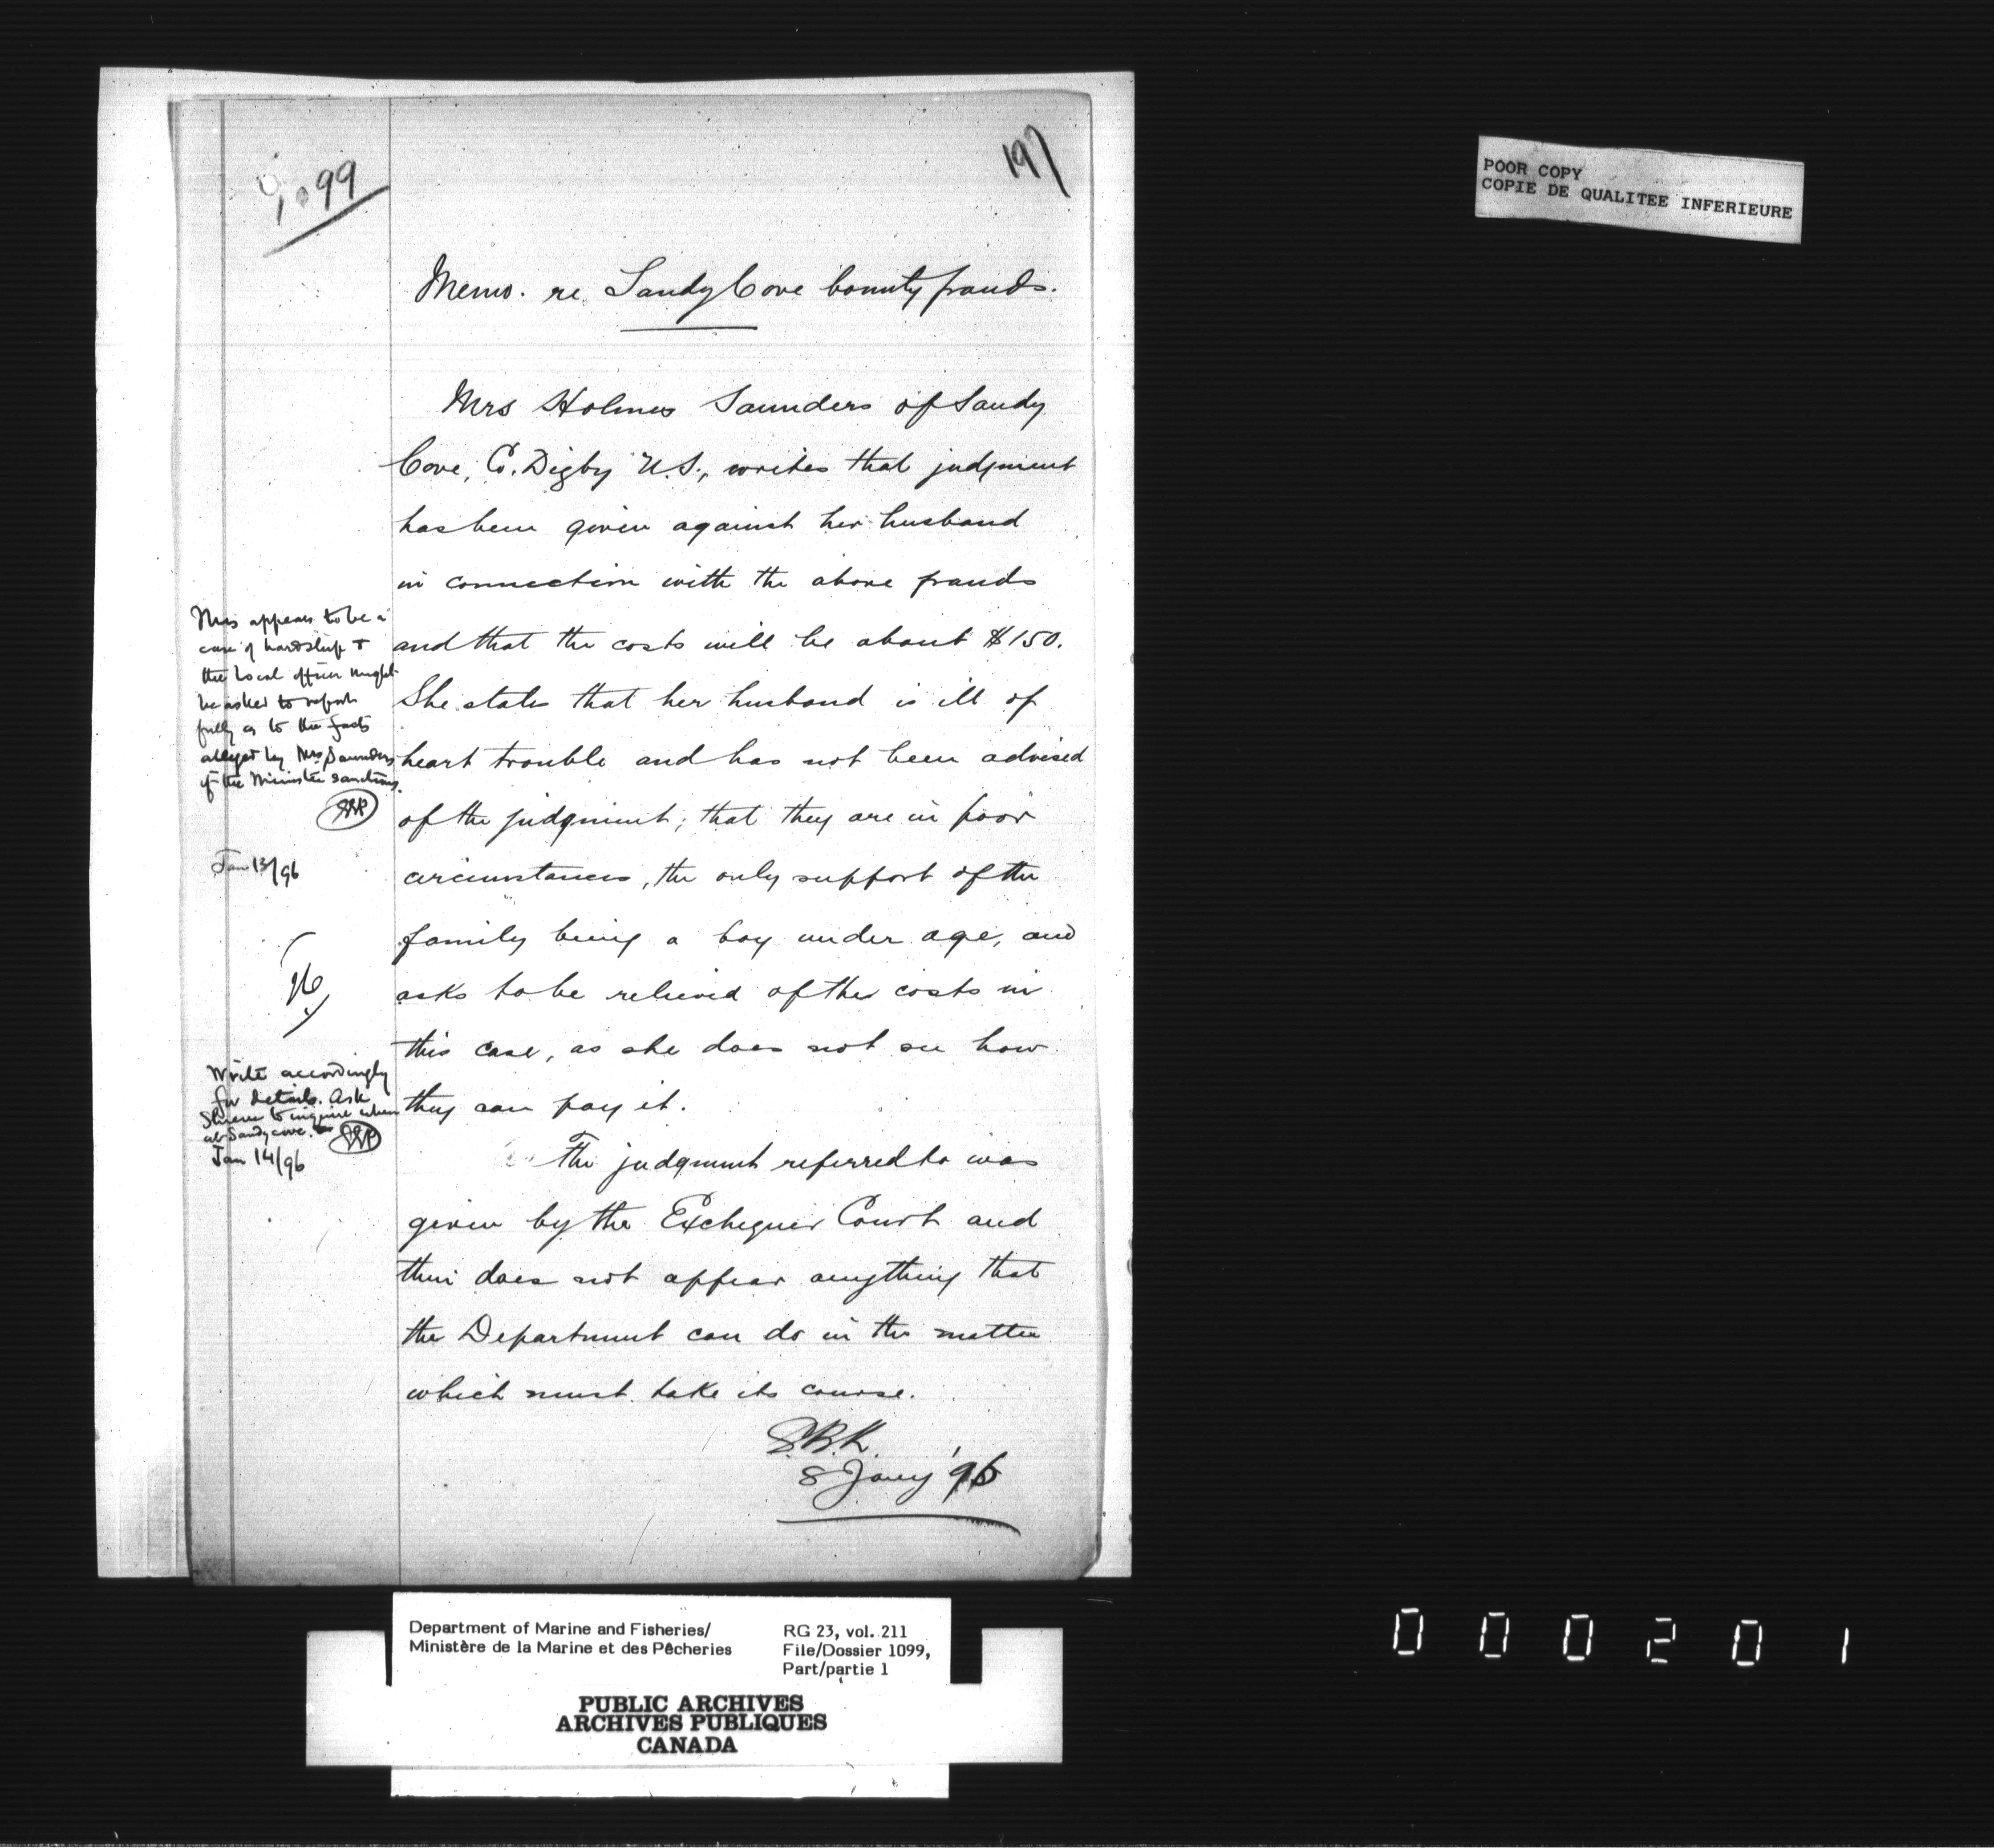 1099
197
Memo. re Sandy Cove bounty frauds.
Mrs Holmes Saunders of Sandy
Cove, Co. Digby N.S., writes that judgment
has been given against her husband
in connection with the above frauds
and that the costs will be about $150.
She states that her husband is ill of
heart trouble and has not been advised
of the judgment; that they are in poor
circumstances, the only support of the
family being a boy under age, and
asks to be relieved of the costs in
this case, as she does not see how
they can pay it.
The judgment referred to was
given by the Exchequer Court and
there does not appear anything that
the Department can do in the matter
which must take its course.
S.B.K.
8 Jany '96
This appears to be a
case of hardship &
the local officer might
be asked to report
fully as to the facts
alleged by Mrs Saunders
if the Minister sanctions.
Jan 13/96
Write accordingly
for details. Ask
to inquire when
at Sandy cove.
Jan 14/96
POOR COPY
COPIE DE QUALITEE INFERIEURE
Department of Marine and Fisheries/
Ministère de la Marine et des Pêcheries
RG 23, vol. 211
File/Dossier 1099,
Part/partie 1
PUBLIC ARCHIVES
ARCHIVES PUBLIQUES
CANADA
000201